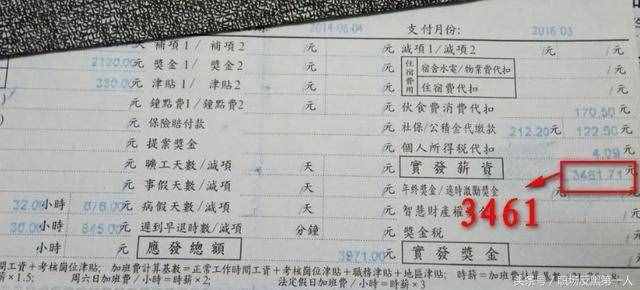 2014-06-04 支付月份: 2016 03
補項1/ 補項2 /元 減項1/減項2 /元 /元
2100.00 元 獎金1/ 獎金2 /元 住宿費用 宿舍水電/物業費代扣
330.00 元 津貼1/ 津貼2 /元 住宿費代扣
元 鐘點費1/鐘點費2 元 伙食費消費代扣 170.50
元 保險賠付款 元 社保/公積金代繳款 212.20元 122.50
元 提案獎金 元 個人所得稅代扣 4.09
元 曠工天數/減項 天 實發薪資 3461.71
元 事假天數/減項 天 年終獎金/適時激勵獎金
32.00小時 676.00元 病假天數/減項 天 智慧財產權
3461
30.00小時 845.00元 遲到早退時數/減項 分鐘 元 獎金稅
小時 元 應發總額 3971.00元 實發獎金
間工資+考核崗位津貼; 加班費計算基數=正常工作時間工資+考核崗位津貼+職務津貼+地區津貼; 時薪=加班費計算基數
×1.5; 周六日加班費/小時=時薪×2; 法定假日加班費/小時=時薪×3
头条号/职场反黑第一人